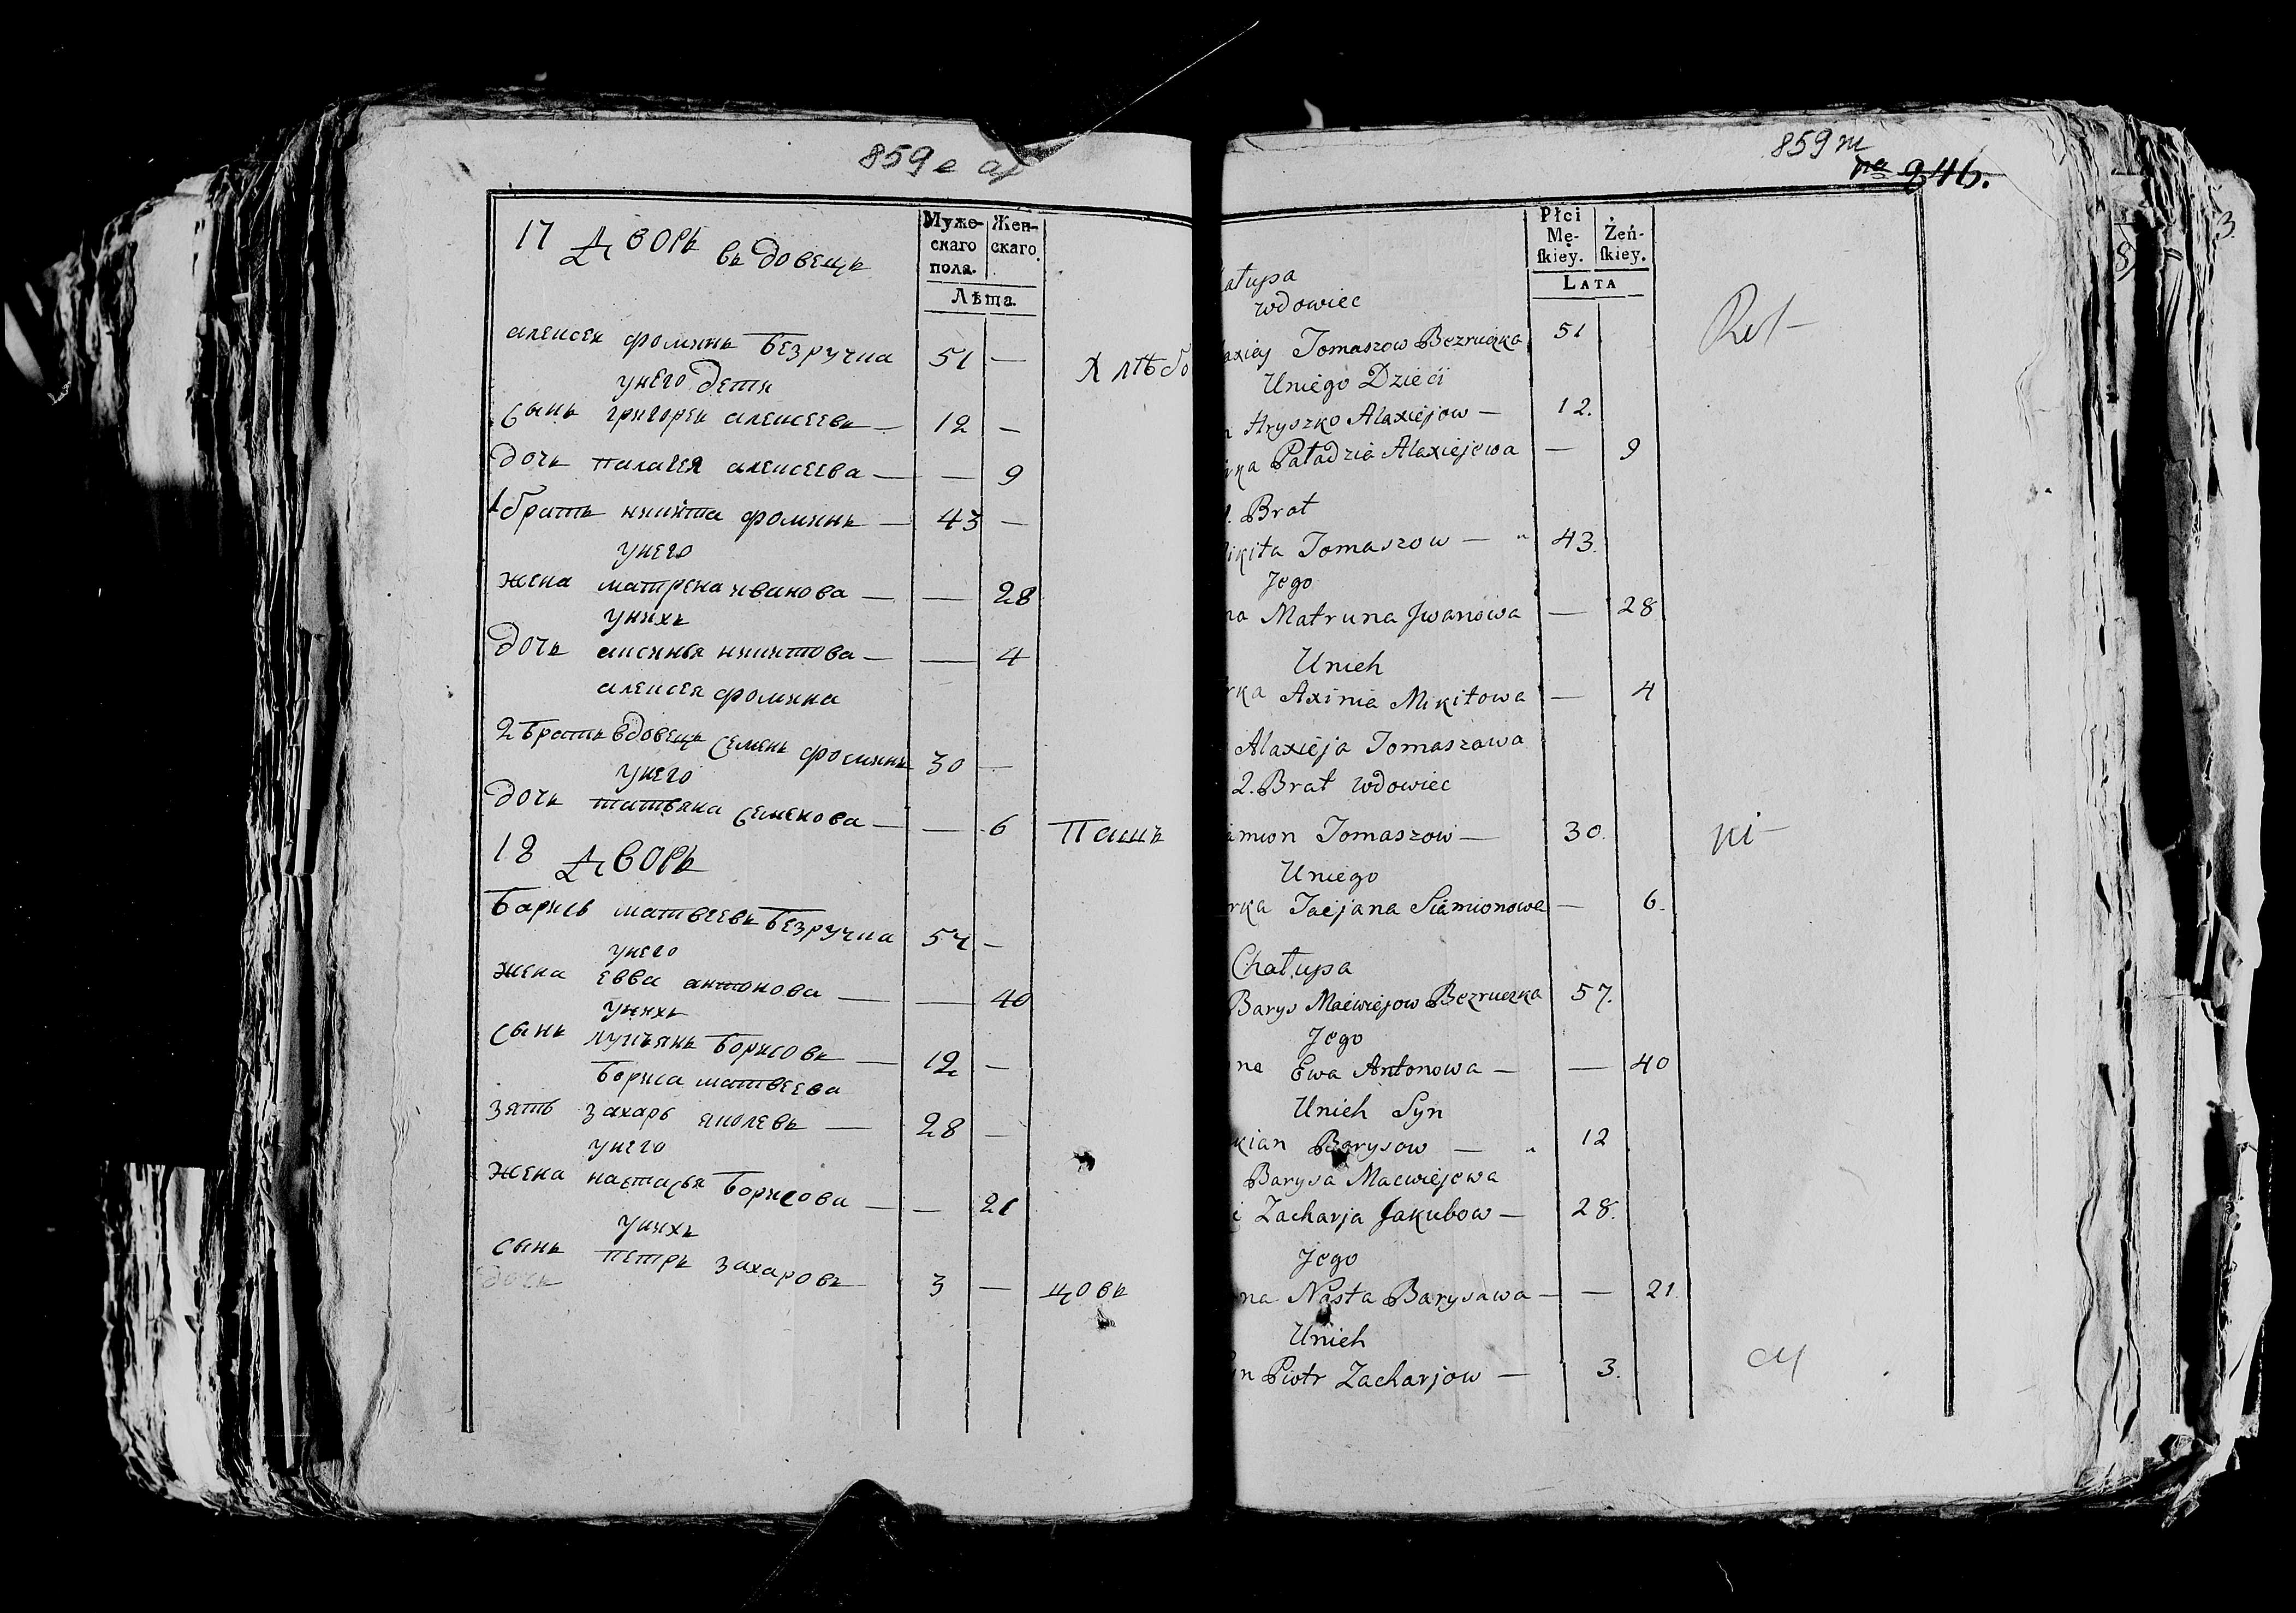 859 е
17 Дворъ въдовецъ
Муже-
скаго
пола.
Жен-
скаго.
Лѣта
алексеи фоминъ Безручка 51 —
унего дети
Сынъ григореи алексеевъ — 12 —
дочъ палагея алексеева — — 9
1 братъ никита фоминъ — 43 —
унего
жена матрена иванова — — 28
унихъ
дочъ аксинья никитова — — 4
алексея фомина
2 Братъ вдовецъ семенъ фоминъ 30 —
унего
дочъ татьяна семенова — — 6
18 Дворъ
Барисъ матвеевъ Безручка 57 —
унего
жена Евва антонова — — 40
унихъ
сынъ лукъянъ Борисовъ — 12 —
Бориса матвеева
зять захаръ яколевъ — 28 —
унего
жена настасья Борисова — — 21
унихъ
сынъ петръ захаровъ 3 —
дочъ
Хлѣбо
Пашъ
цовъ
859 ж
на 246.
Płci
Mę-
skiey.
Żeń-
skiey.
LATA
ałupa
wdowiec
axiey Tomaszow Bezruczka 51
Uniego Dzieci
Hryszko Alaxiejow — 12.
rka Paładzia Alaxiejewa — 9
1. Brat
ikita Tomaszow — " 43.
Jego
na Matruna Jwanowa — 28
Unich
rka Axinia Mikitowa — 4
Alaxieja Tomaszawa
2. Brat wdowiec
amion Tomaszow — 30.
Uniego
rka Tacjana Siamionowa — 6.
Chałupa
Barys Maćwiejow Bezruczka 57.
Jego
na Ewa Antonowa — — 40
Unich Syn
kian Barysow — " 12
Barysa Maćwiejewa
ć Zacharja Jakubow — 28.
Jego
na Nasta Barysawa — — 21.
Unich
n Piotr Zacharjow — 3.
Rol—
ni—
cy